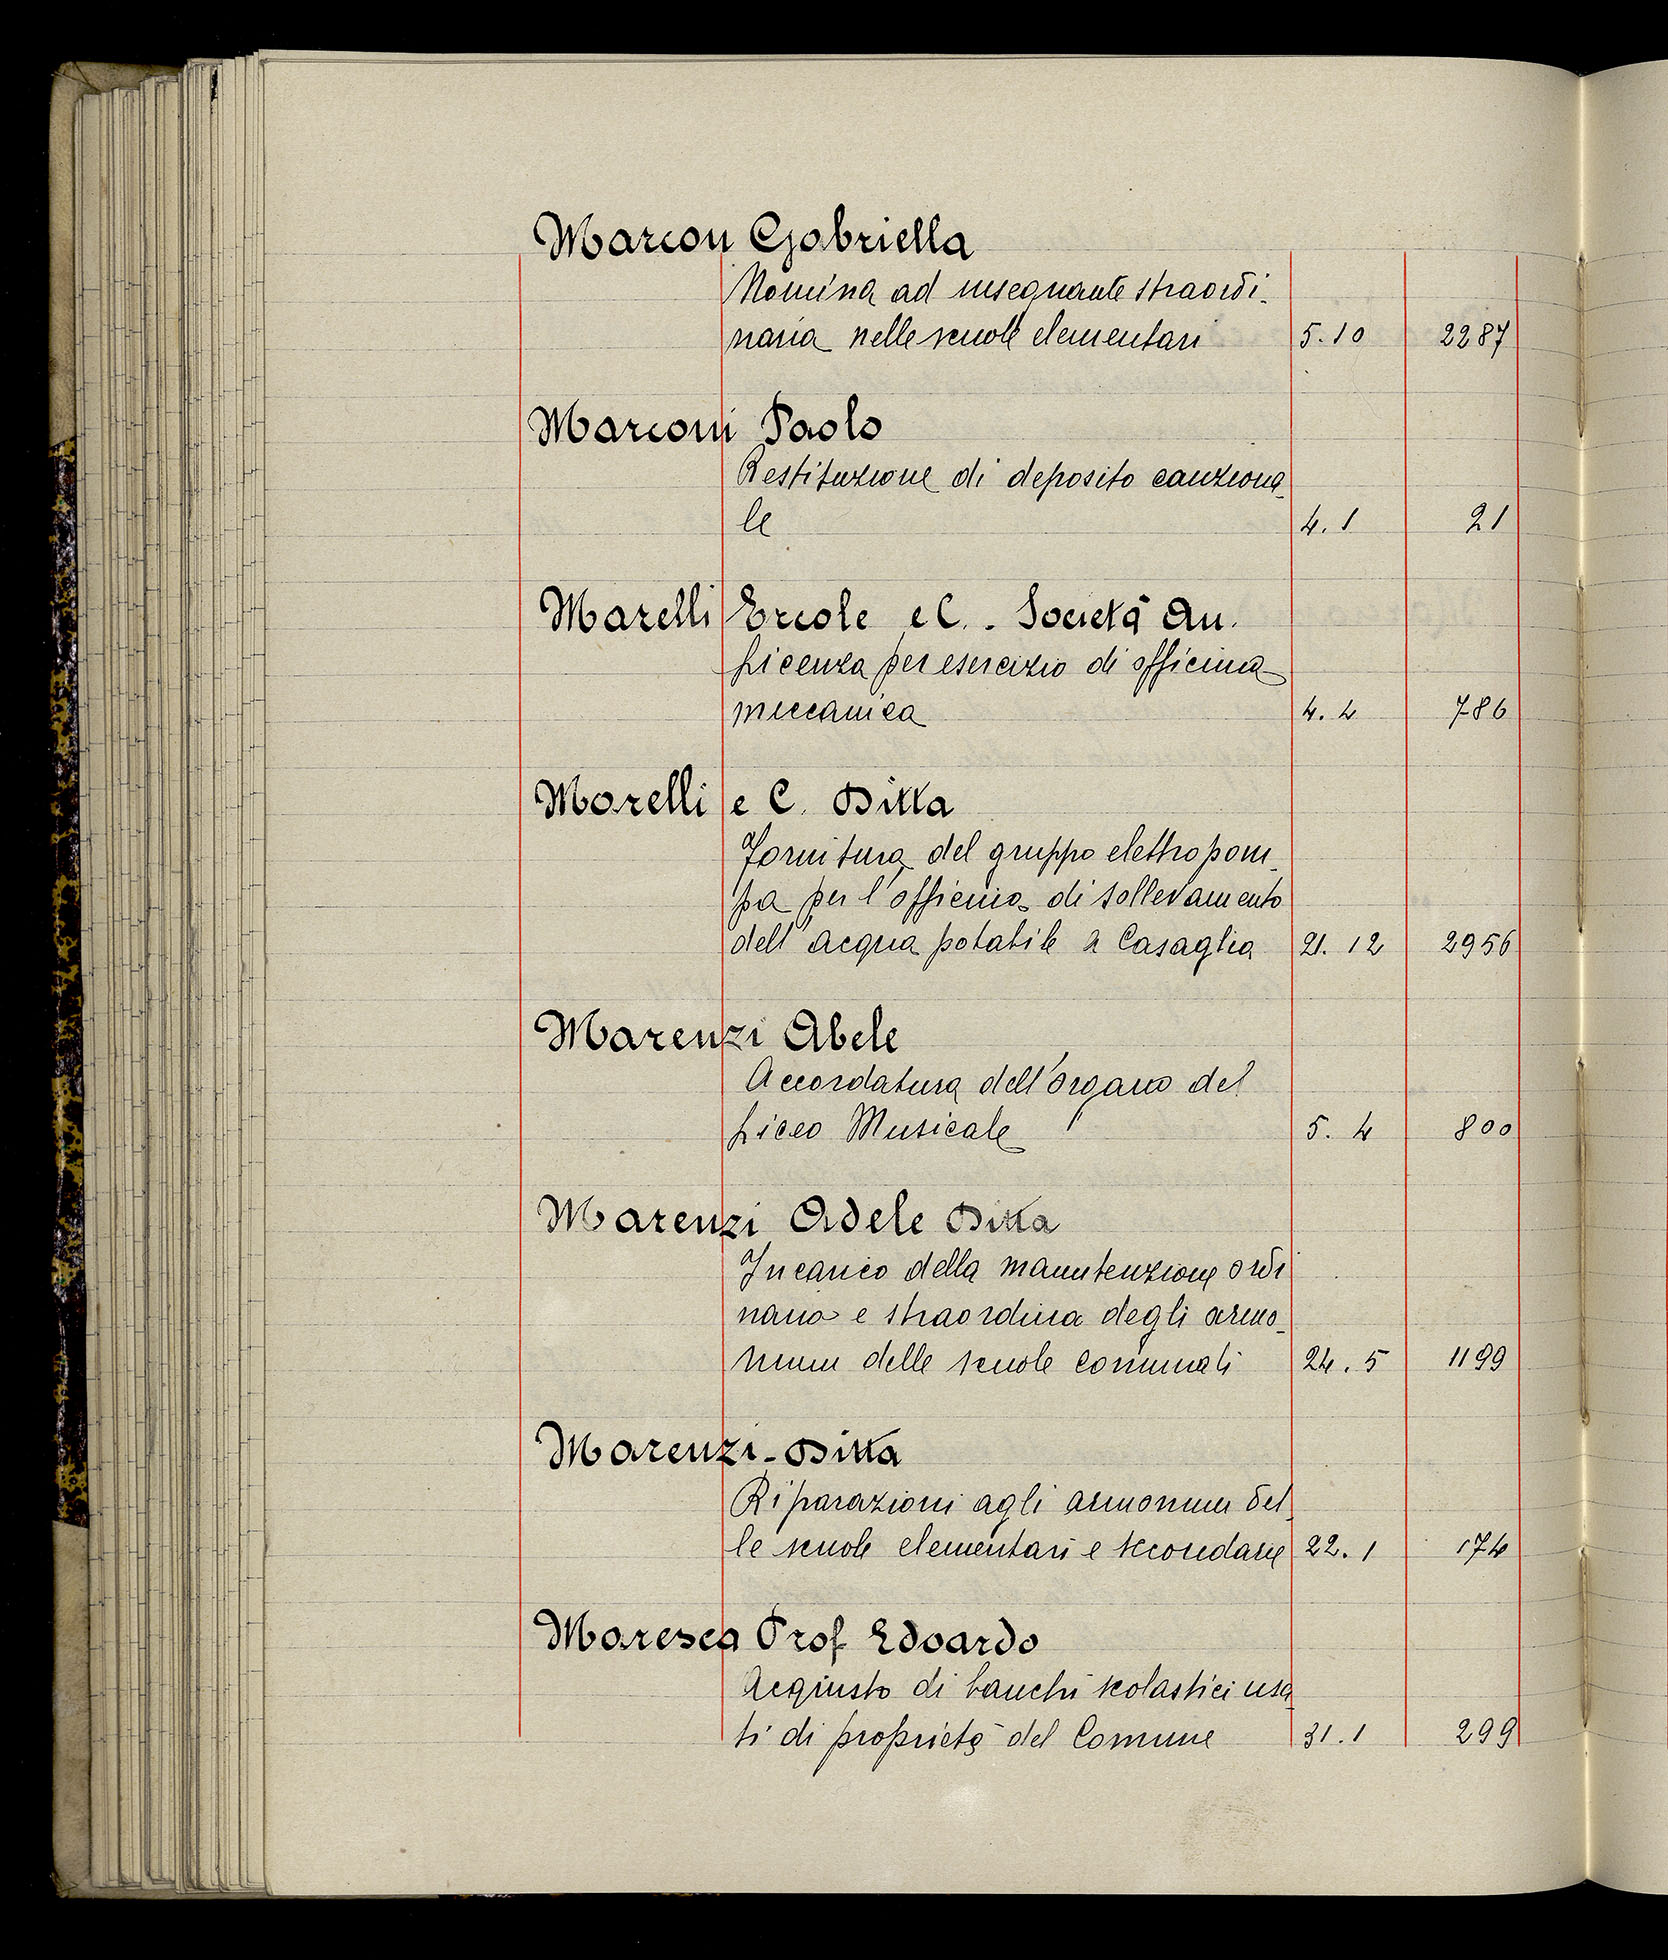 Marcon Gabriella
Nomina ad insegnante straordi-
naria nelle scuole elementari 5.10 2287
Marconi Paolo
Restituzione di deposito cauziona-
le 4.1 21
Marelli Ercole e C. - Società An.
Licenza per esercizio di officina
meccanica 4.4 786
Morelli e C. Ditta
Fornitura del gruppo elettropom-
pa per l'officina di sollevamento
dell'acqua potabile a Casaglia 21.12 2956
Marenzi Abele
Accordatura dell'organo del
Liceo Musicale 5.4 800
Marenzi Adele Ditta
Incarico della manutenzione ordi
naria e straordina degli armo-
nium delle scuole comunali 24.5 1199
Marenzi - Ditta
Riparazioni agli armonium del-
le scuole elementari e secondarie 22.1 174
Maresca Prof Edoardo
Acquisto di banchi scolastici usa
ti di proprietà del Comune 31.1 299